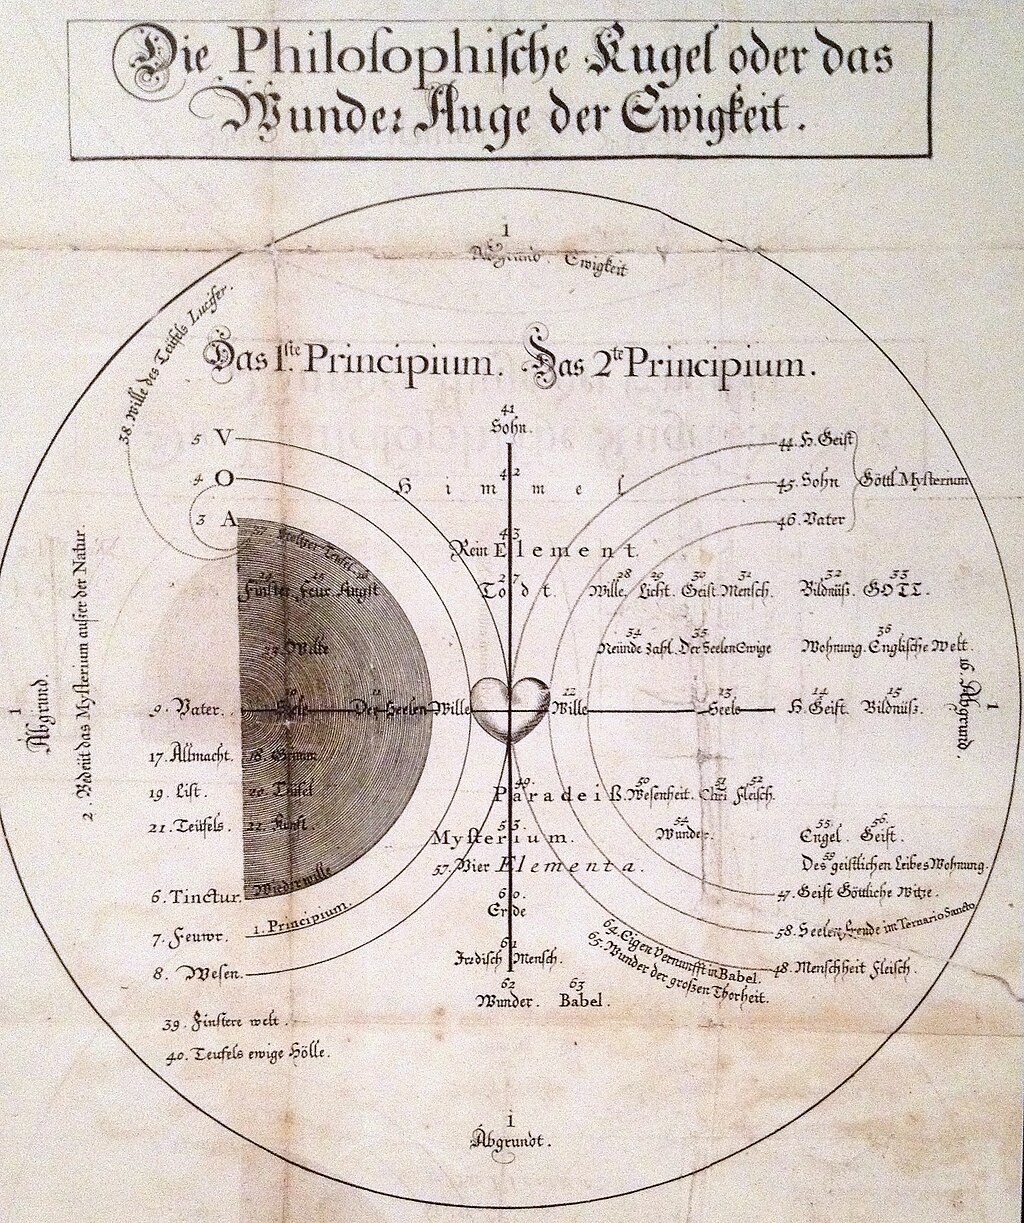 Die Philosophische Kugel oder das
Wunder Auge der Ewigkeit.
1
Abgrund. Ewigkeit
38. Wille des Teufels Lucifer.
Das 1.ste Principium. Das 2te Principium.
41
Sohn.
5 V
44. H. Geist
4 O
42
Himmel
45. Sohn
Göttl. Mysterium
3 A
46. Vater
37 Teufel
43
Rein Element.
Finster Feur Angst
27
Todt.
28 29 30 31 32 33
Wille. Licht. Geist. Mensch. Bildnüß. GOTT.
Wille
34 35 36
Neünde Zahl. Der Seelen Ewige Wohnung. Englische Welt.
1
Abgrund.
2. Bedeüt das Mysterium außer der Natur.
9. Vater.
10
Seele
11
Der Seelen Wille
12
Wille
13
Seele
14 15
H. Geist. Bildnüß.
16. Abgrund.
1
17. Allmacht. 18. Grimm
19. List. 20. Teüfel
21. Teüfels. 22. Kunst.
49.
Paradeiß.
50 51 52
Wesenheit. Chri Fleisch.
53.
Mysterium.
54
Wunder.
55. 56.
Engel. Geist.
57. Vier Elementa.
59
Des geistlichen Leibes Wohnung.
6. Tinctur. Wiederwille
47. Geist Göttliche Witze.
60.
Erde
7. Feuwr. 1. Principium.
58. Seelen Freude im Ternario Sancto
61
Irrdisch Mensch.
64. Eigen Vernunfft in Babel.
65. Wunder der großen Thorheit.
8. Wesen.
48. Menschheit Fleisch.
62 63
Wunder. Babel.
39. Finstere welt.
40. Teufels ewige Hölle.
1
Abgrundt.